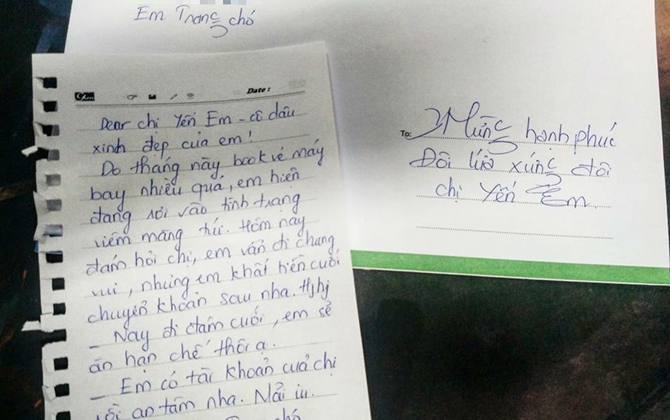 Em Trang chó
Date:
Dear chị Yến Em - cô dâu
xinh đẹp của em!
Do tháng này book vé máy
bay nhiều quá, em hiện
đang rơi vào tình trạng
viêm màng túi. Hôm nay
đám hỏi chị, em vẫn đi chung
vui, nhưng em khất tiền cưới
chuyển khoản sau nha. Hịhị
- Nay đi đám cưới, em sẽ
ăn hạn chế thôi ạ.
- Em có tài khoản của chị
rồi an tâm nha. Mãi iu.
chó
To: Mừng hạnh phúc
Đôi lứa xứng đôi
chị Yến Em